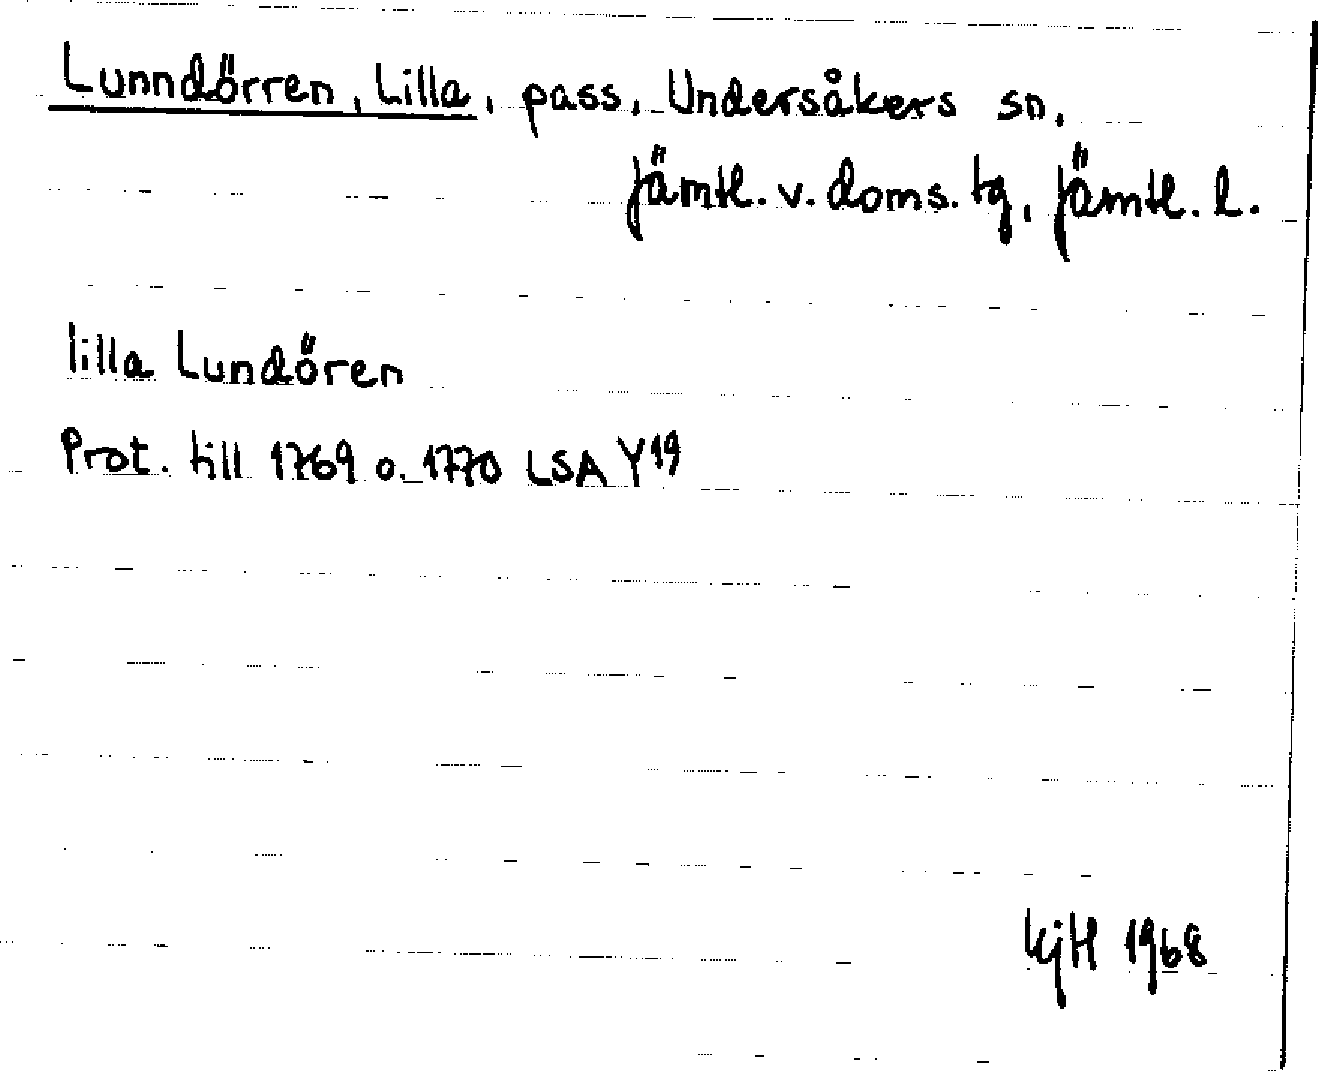 Lunndörren, Lilla, pass, Undersåkers sn,
Jämtl. v. doms. tg, Jämtl. l.
lilla Lundören
Prot. till 1769 o. 1770 LSA Y19
KjH 1968